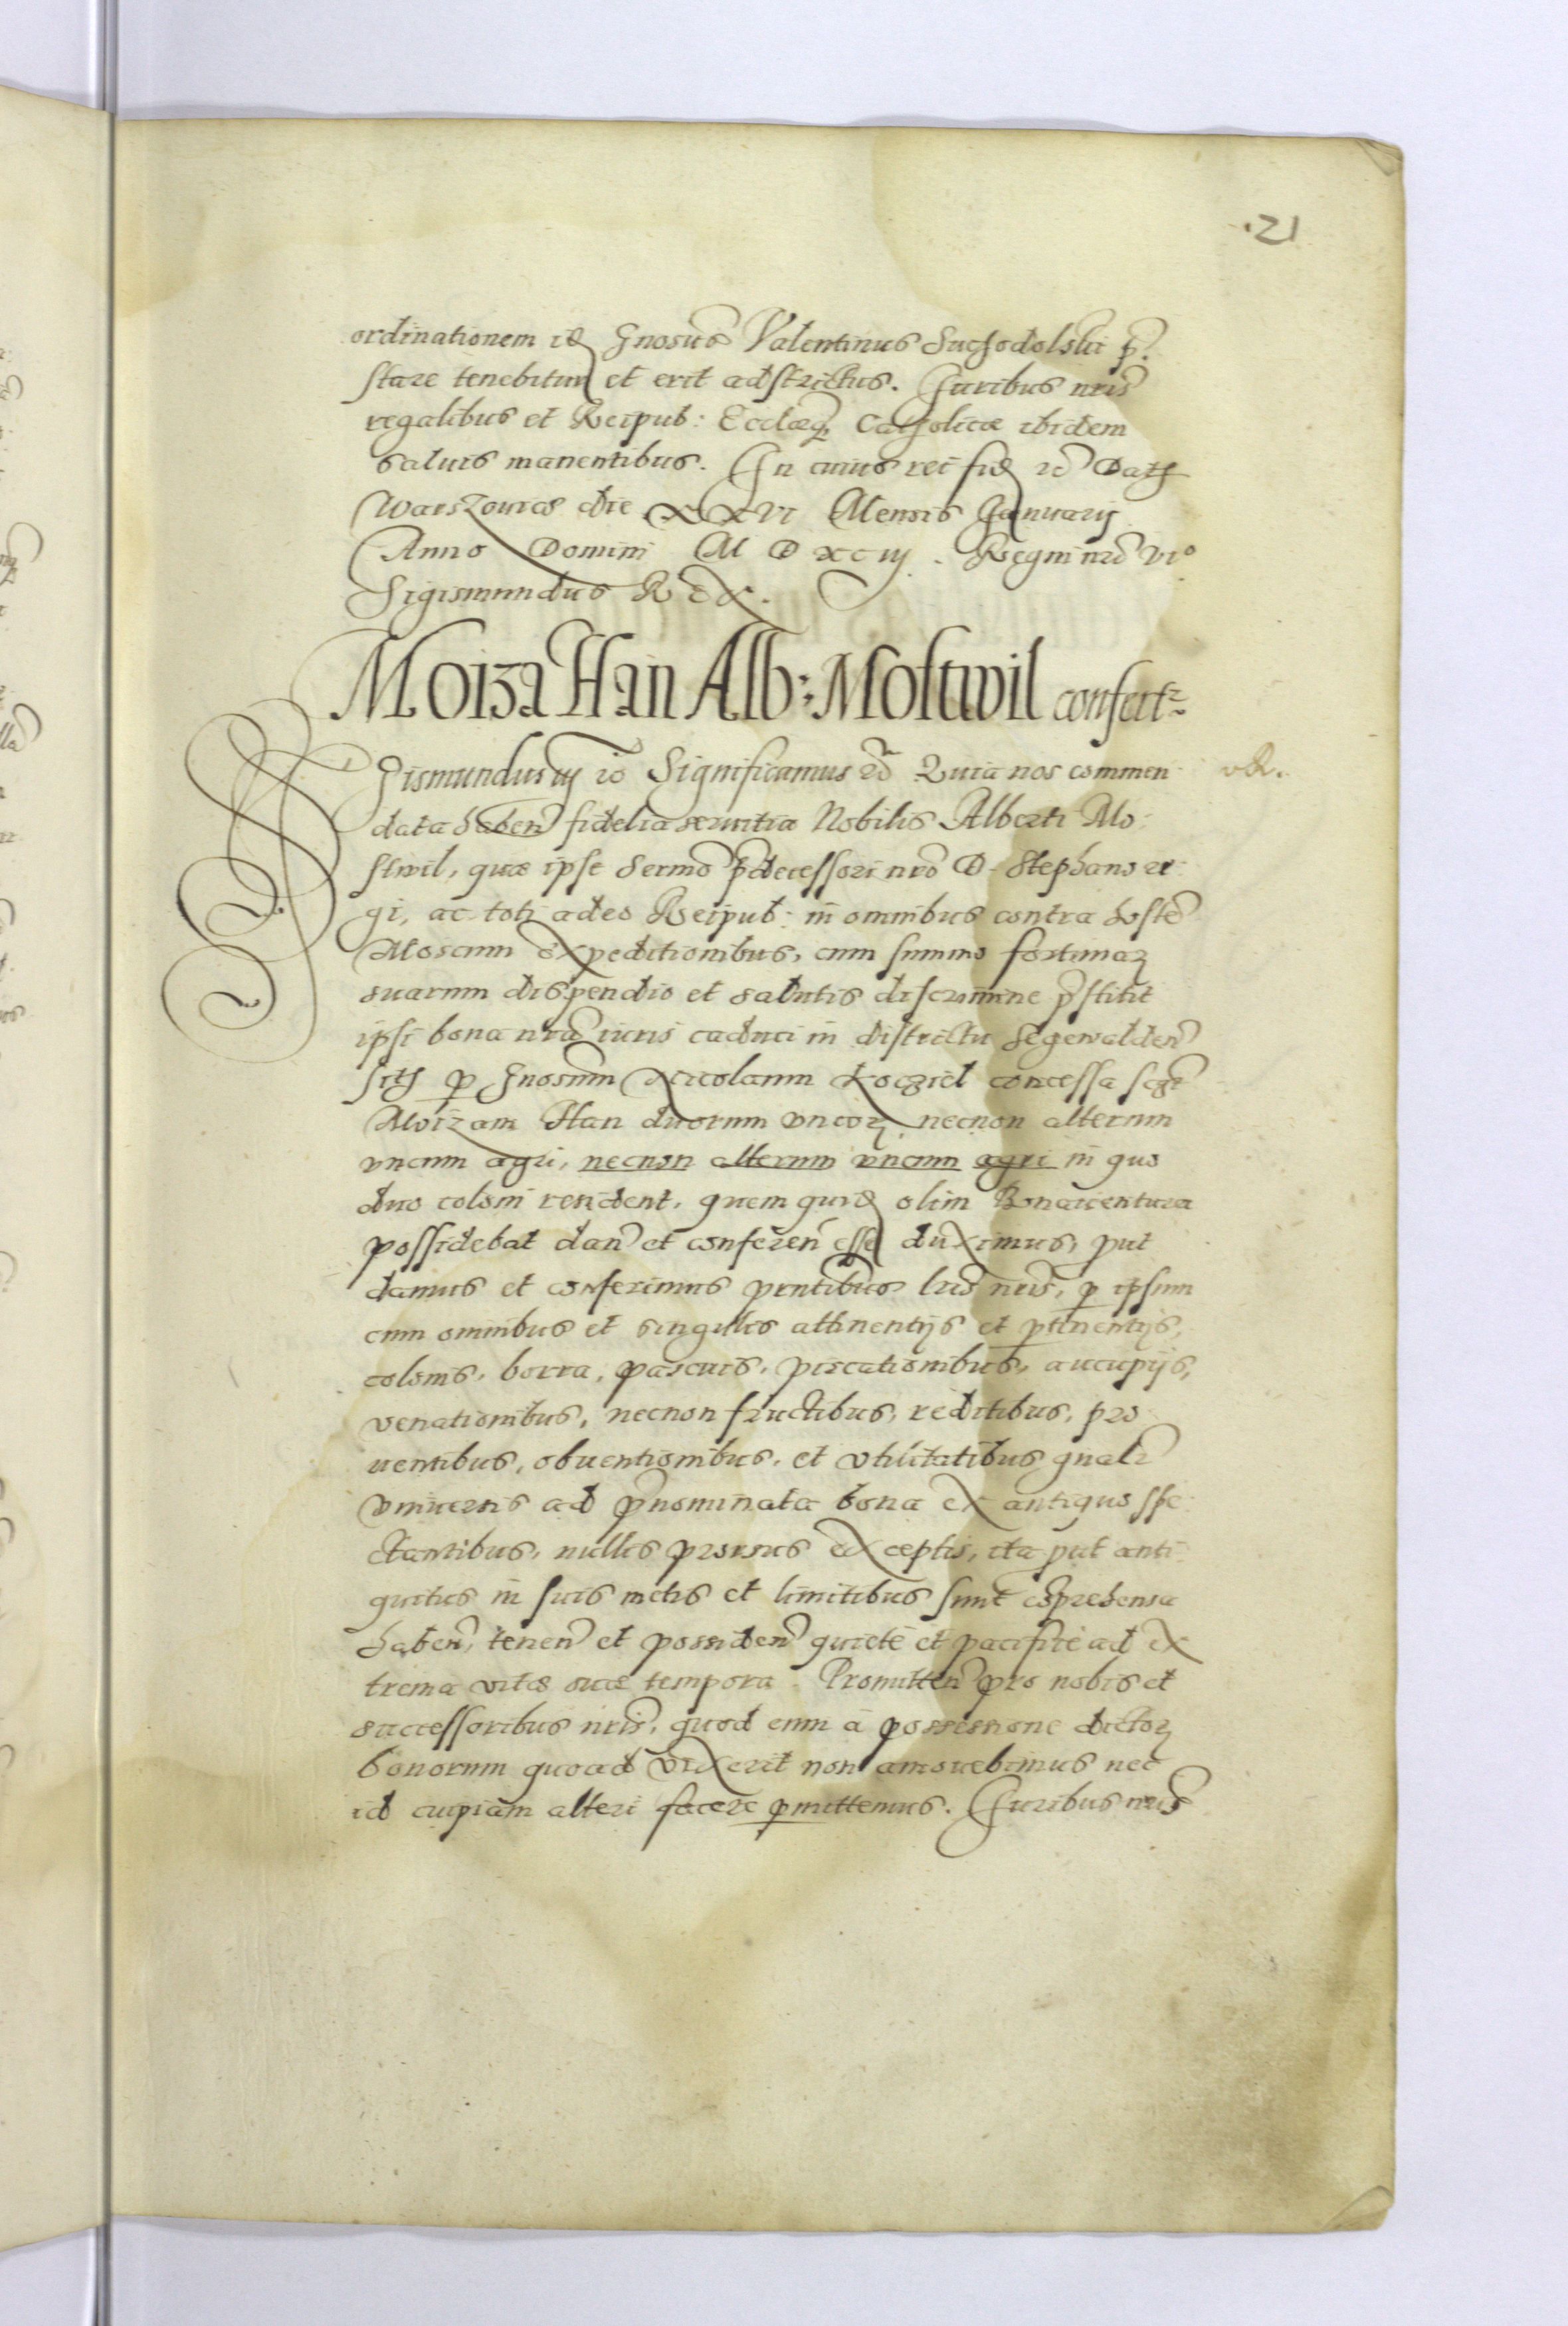 21
ordinationem id Gnosus Valentinus Suchodolski p
stare tenebitur et erit adstrictus. Juribus nris
regalibus et Reipub: Ecclæq Catholicæ ibidem
saluis manentibus. In cuius rei fid Dat
Warszouiæ die XXVI Mensis Januarij
Anno Domini M D XC iij. Regni nrō VIº
Sigismundus REX.
Moiza Han Alb: Mostwil confert
Gismundus iij Significamus Quia nos commen
data haben fidelia seruitia Nobilis Alberti Mo
stwil, quæ ipse Sermō pdecessori nrō D. Stephano re
gi, ac toti adeo Reipub: in omnibus contra hostē
Moscum expeditionibus, cum summo fortunar
suarum dispendio et salutis discrimine pstitit
ipsi bona nrā iuris caduci in districtu Segewalden
sit p Gnosum Nicolaum Korziel concessa sct
Moizam Han duorum uncor, necnon alterum
vncum agri, necnon alterum vncum agri in quo
duo coloni resident, quem quid olim Bonauentura
possidebat dan et conferen esse duximus, put
damus et conferimus pntibus lris nris, p ipsum
cum omnibus et singulis attinentijs et ptinentijs,
colonis, borra, pascuis, piscationibus, aucupijs,
venationibus, necnon fructibus, reditibus, pro
uentibus, obuentionibus, et vtilitatibus gnalr
vniuersis ad pnominata bona ex antiquo spe
ctantibus, nullis prorsus exceptis, ita put anti
quitus in suis metis et limitibus sunt cōprehensa
haben, tenen et possiden quietè et pacificè ad ex
trema vitæ suæ tempora. Promitten pro nobis et
successoribus nris, quod eum à possessione dictor
bonorum quoad vixerit non amouebimus nec
id cuipiam alteri facere pmittemus. Juribus nris